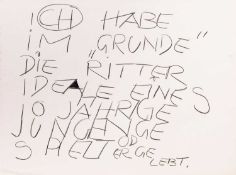 ICH HABE
IM GRUNDE
DIE "RITTER"
IDEALE EINES
10 JÄHRIGE
JUNGEN GE
SPIELT OD
ER GE
LEBT.